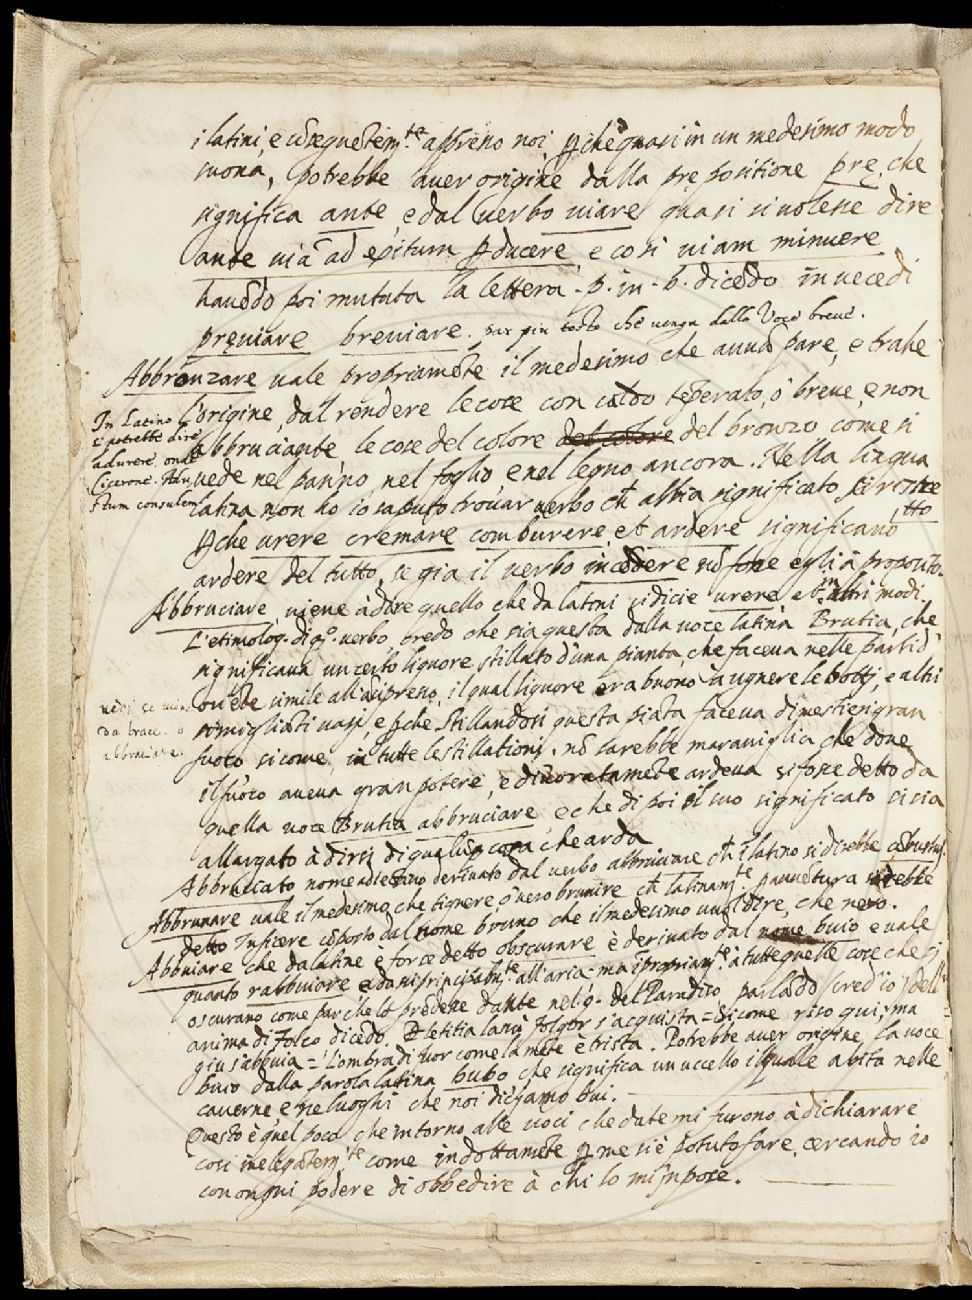 i latini, e cõsequẽtem.te appreno noi, ꝑche quasi in un medesimo modo
suona, potrebbe aver origine dalla prepositione prę, che
significa ante, e dal verbo viare quasi si volesse dire
ante viã ad epitum ꝑducere e cosi viam minuere
havẽdo poi mutata la lettera .p. in .b. dicẽdo in vece di
pręviare breviare. pur piu tosto che venga dalla Voce breve.
Abbronzare vale propriamẽte il medesimo che avvãpare, e trahe
l'origine dal rendere le cose con caldo tẽperato, ò breve, e non
abbruciãnte le cose del colore del colore del bronzo come si
vede nel panno, nel foglio, e nel legno ancora. Nella lingua
latina non ho io saputo trovar verbo ch̃ abbia significato si ristre
tto
ꝑche urere cremare comburere, et ardere significano
ardere del tutto, se gia il verbo incẽdere nõ fosse egli à proposito.
In Latino
si potrebbe dire
adurere, onde
Cicerone
stum consulem
Abbruciare, viene à dire quello che da latini si dicie urere e in altri modi.
L'etimolog. di qo. verbo, credo che sia questa dalla voce latina Brutia, che
significava un certo liquore stillato d'una pianta, che faceva nelle parti d'
simile all'arcipresso, il qual liquore era buono à ugnere le botti, e altri
somigliãti vasi, e ꝑche stillandosi questa piãta faceva di mestieri gran
fuoco sicome, in tutte le stillationi. nõ sarebbe maraviglia che dove
il fuoco aveva gran potere, e divoratamẽte ardeva si fosse detto da
quella voce Brutia abbruciare, e che di poi il suo significato si sia
allargato à dirsi di qualũq cosa che arda
vedi se viene
da brace. o
abbraciare.
Abbruccato nome adiettivo derivato dal verbo abbruciare ch̃ i latino si direbbe abustus.
Abbrunare vale il medesimo, che tignere, ò vero brunire ch̃ latinam.te p avvẽtura sarebbe
detto Inficere cõposto dal nome bruno che il medesimo vuol dire, che nero.
Abbuiare che da latine e forse detto obscurare è derivato dal nome buio e vale
quanto rabbuiare e da noi principalm.te all'aria - ma ĩpropriam.te à tutte quelle cose che si
oscurano come par che lo prẽdesse dante nel 9. del Paradiso parlãdo (cred'io) dell'
anima di Folco dicẽdo. P letitia lasù folgor s'acquista = Si come riso qui; ma
giu s'abbuia = L'ombra di fuor come la mẽte è trista. Potrebbe aver origine la voce
buio dalla parola lattina bubo che significa un uccello il quale abita nelle
caverne, e ne luoghi che noi diciamo bui.
Questo è quel poco che intorno alle voci che date mi furono à dichiarare
cosi inelegãtem.te come indottamẽte ꝑ me si è potuto fare, cercando io
con ongni podere di obbedire à chi lo mi ĩmpose.